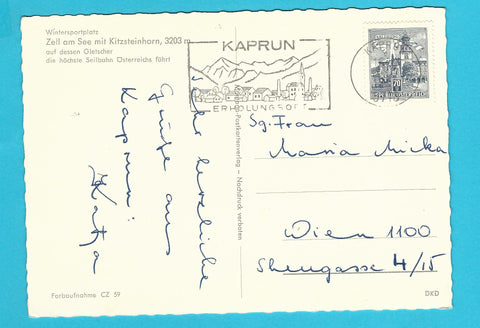 Wintersportplatz
Zell am See mit Kitzsteinhorn, 3203 m
auf dessen Gletscher
die höchste Seilbahn Österreichs führt
KAPRUN
ERHOLUNGSORT
REPUBLIK ÖSTERREICH
70
Sehr herzliche
Grüße aus
Kaprun!
Katja
Postkartenverlag - Nachdruck verboten
Sg. Frau
Maria Micka
Wien 1100
4/15
Farbaufnahme CZ 59
DKD